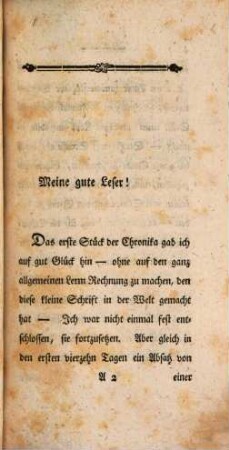 Meine gute Leſer!
Das erſte Stück der Chronika gab ich
auf gut Glück hin — ohne auf den ganz
allgemeinen Lerm Rechnung zu machen, den
dieſe kleine Schrift in der Welt gemacht
hat — Ich war nicht einmal feſt ent-
ſchloſſen, ſie fortzuſetzen. Aber gleich in
den erſten vierzehn Tagen ein Abſatz von
A 2 einer